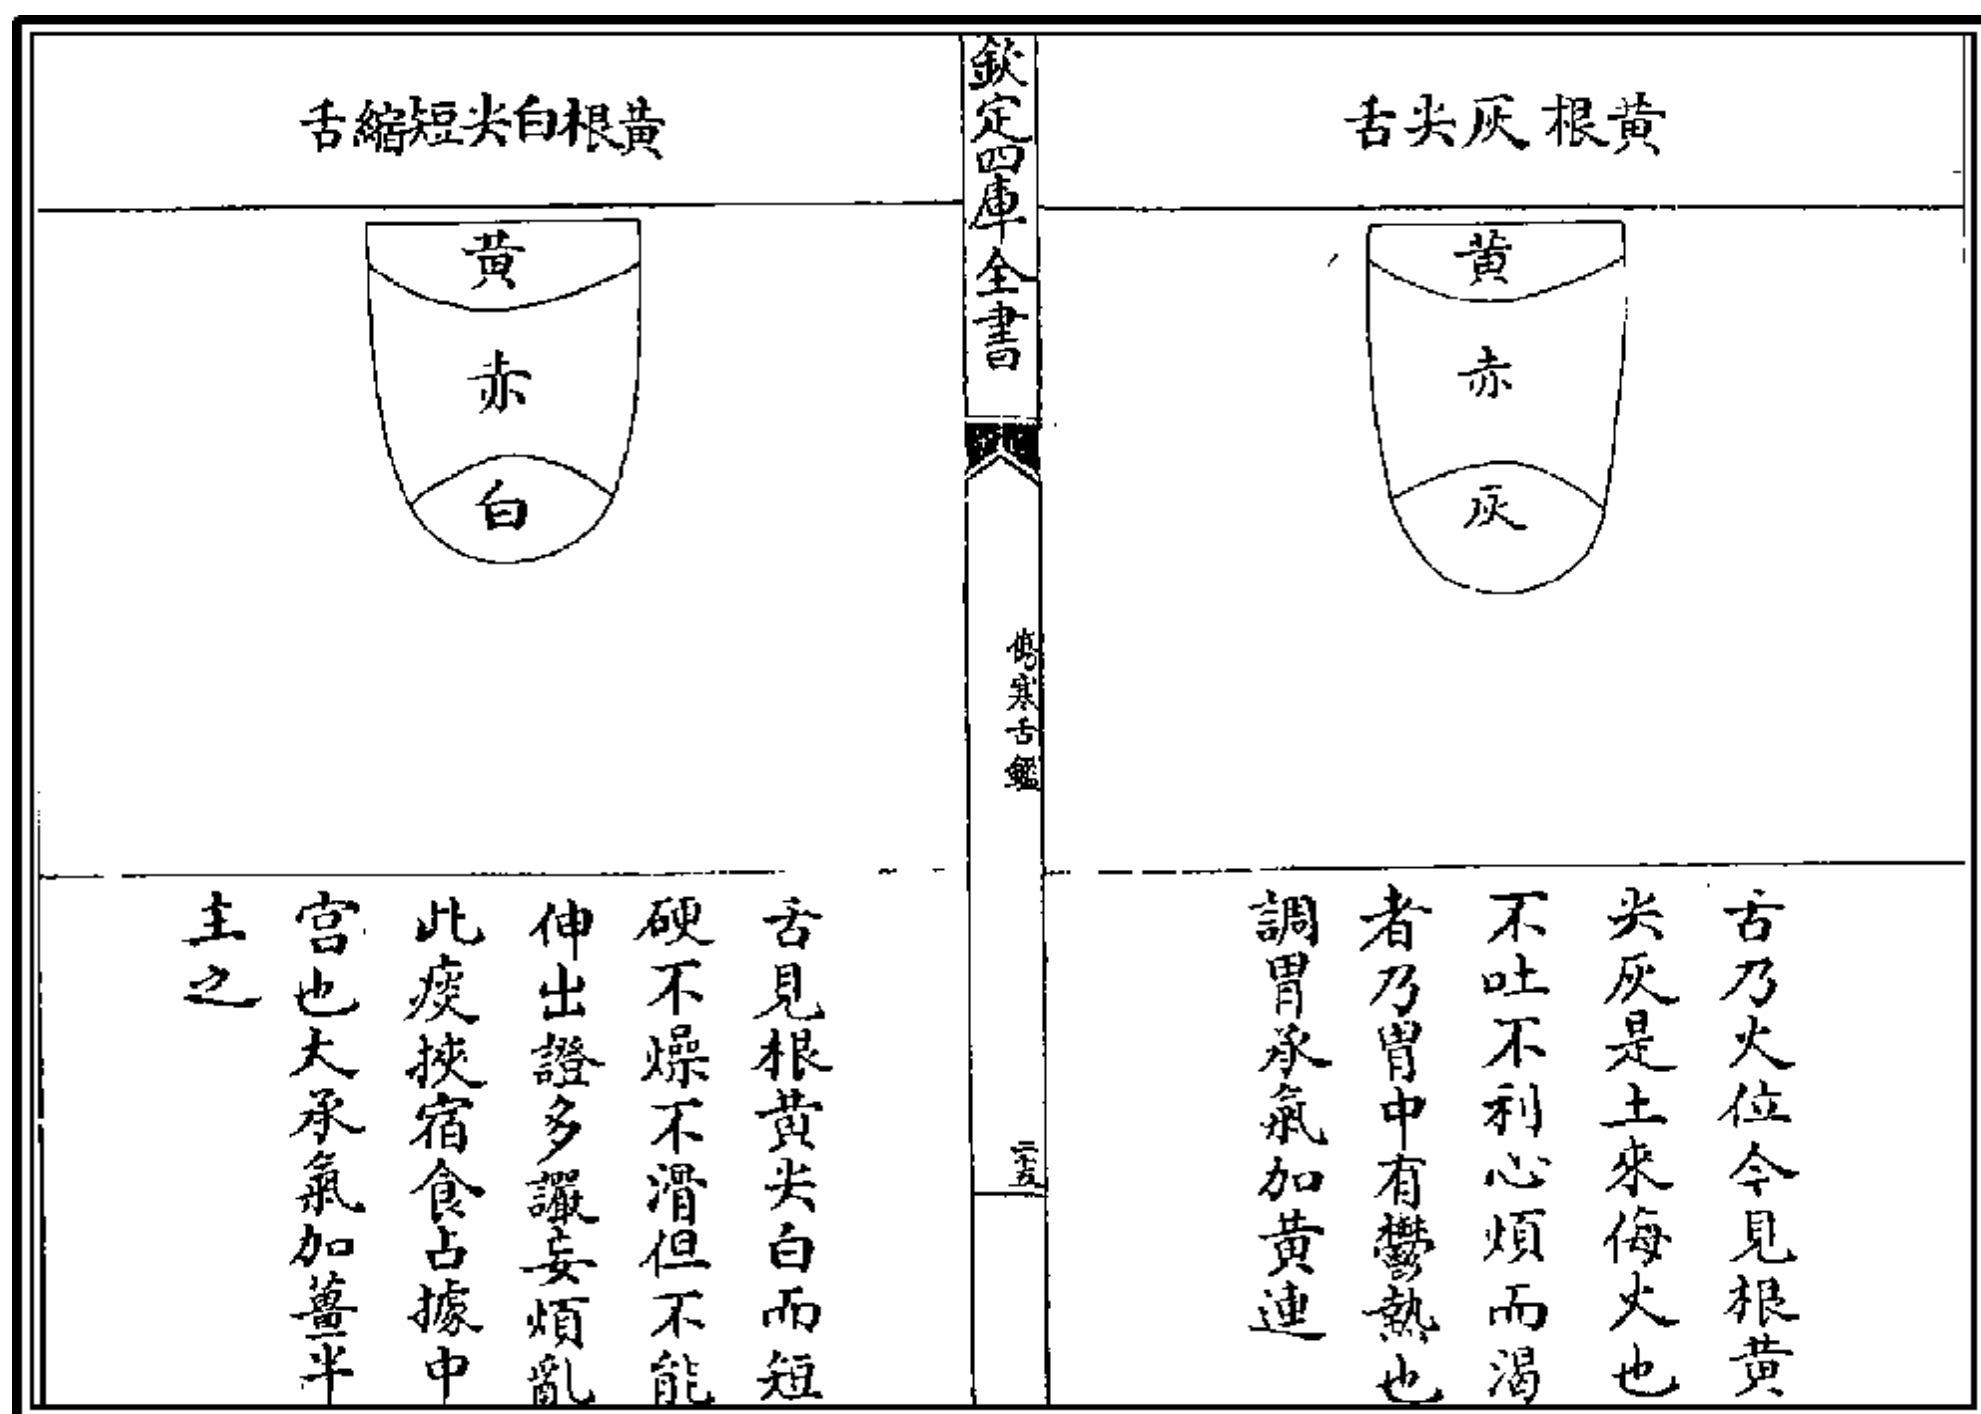 黃根灰尖舌
黃
赤
灰
舌乃火位今見根黃
尖灰是土來侮火也
不吐不利心煩而渴
者乃胃中有鬱熱也
調胃承氣加黃連
欽定四庫全書
傷寒舌鑑
二十五
黃根白尖短縮舌
黃
赤
白
舌見根黃尖白而短
硬不燥不滑但不能
伸出證多讝妄煩亂
此痰挾宿食占據中
宮也大承氣加薑半
主之